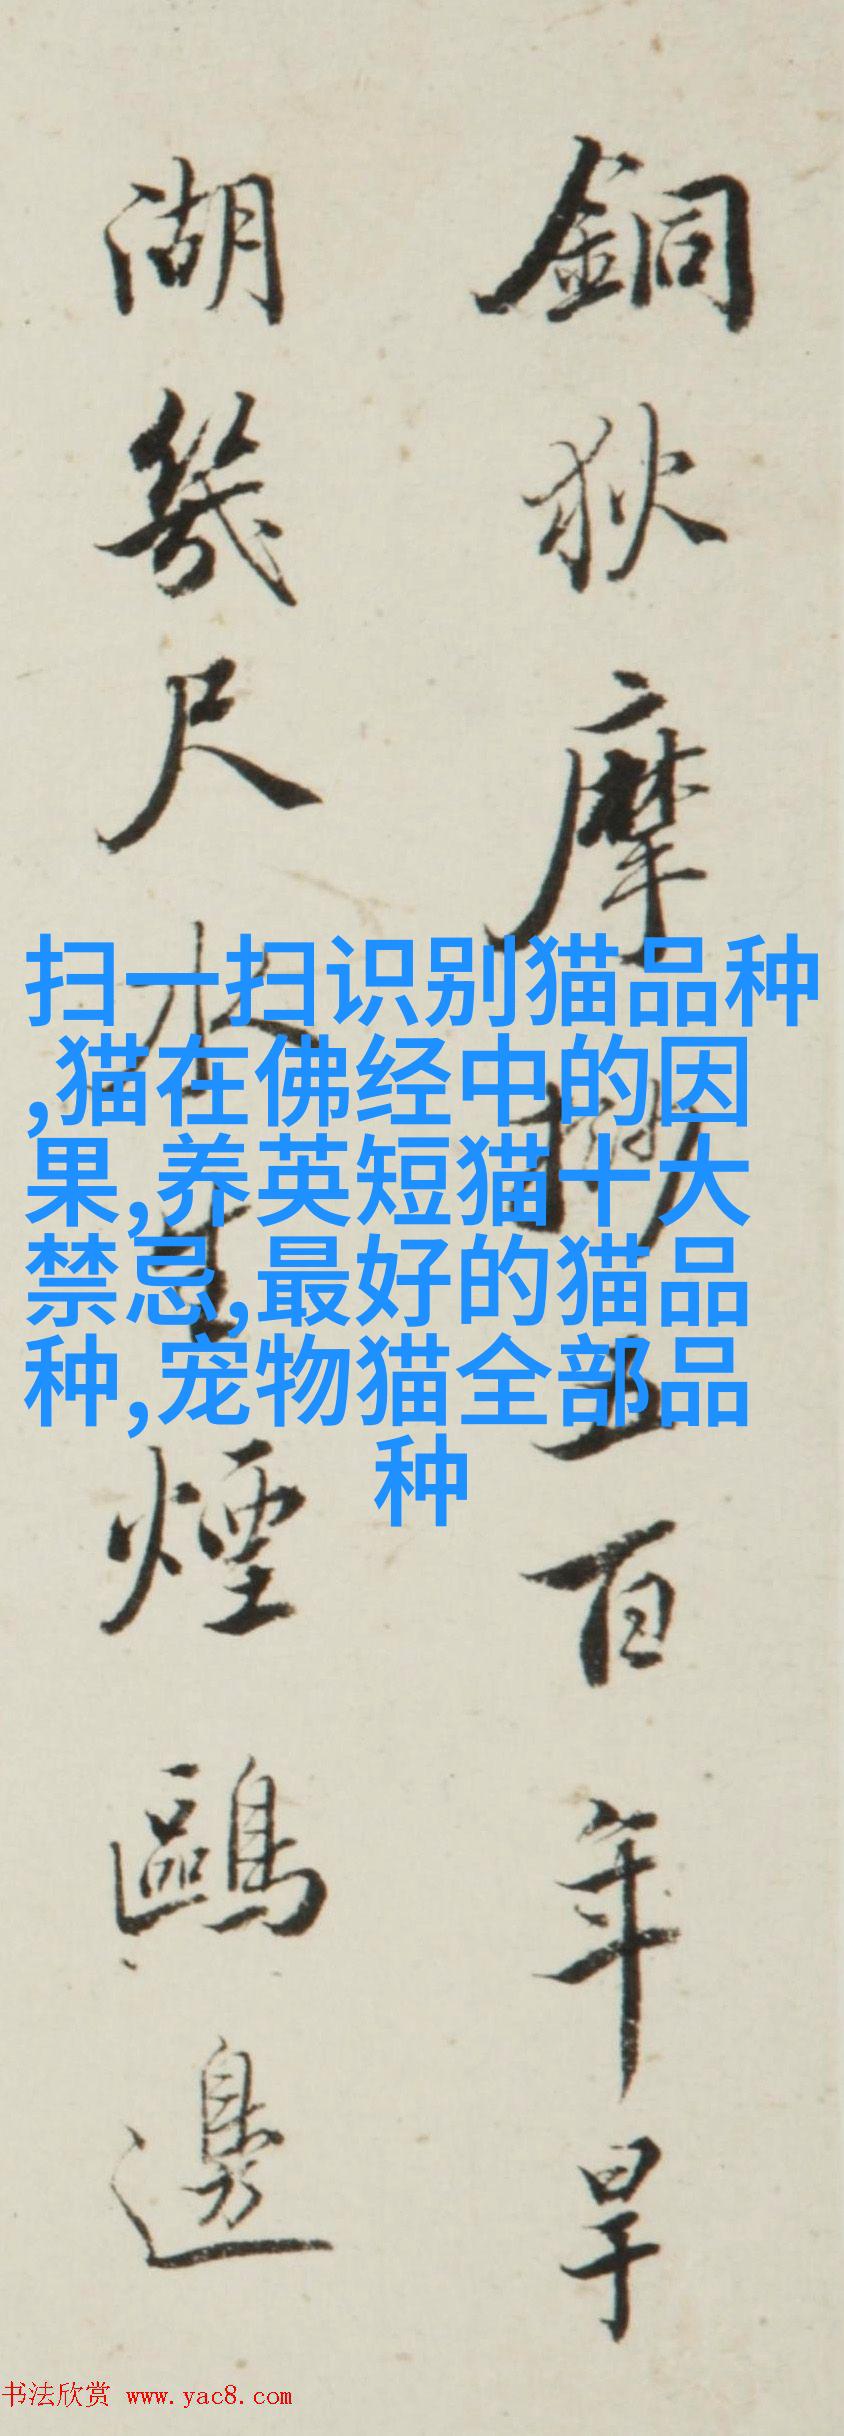 銅狄摩五百年旱
湖幾尺水生煙鷗邊
扫一扫识别猫品种
,猫在佛经中的因
果,养英短猫十大
禁忌,最好的猫品
种,宠物猫全部品
种
书法欣赏 www.yac8.com